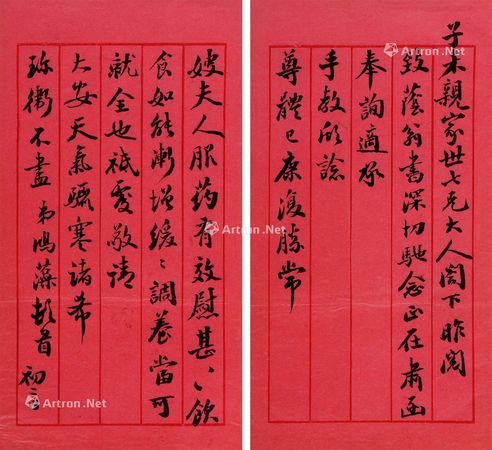 子禾親家世七兄大人閣下昨閱
致蔭翁書深切馳念正在肅函
奉詢適承
手教欣諗
尊體已康復勝常
嫂夫人服药有效慰甚〻飲
食如能漸增緩〻調養當可
就全也祗爰敬請
大安天氣驟寒諸希
珍衛不盡 弟鴻藻頓首 初二
Artron.Net
Artron.Net
Artron.Net
Artron.Net